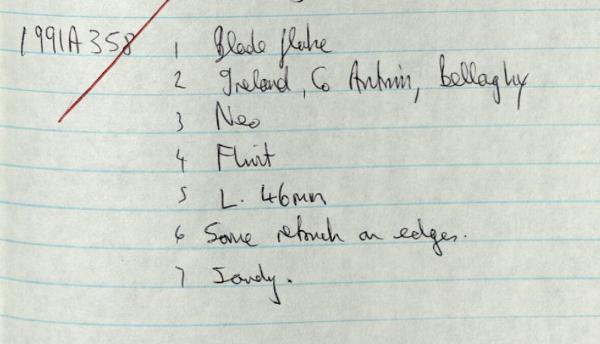 1991A 358 1 Blade flake
2 Ireland, Co Antrim, Bellaghy
3 Neo
4 Flint
5 L. 46mm
6 Some retouch on edges.
7